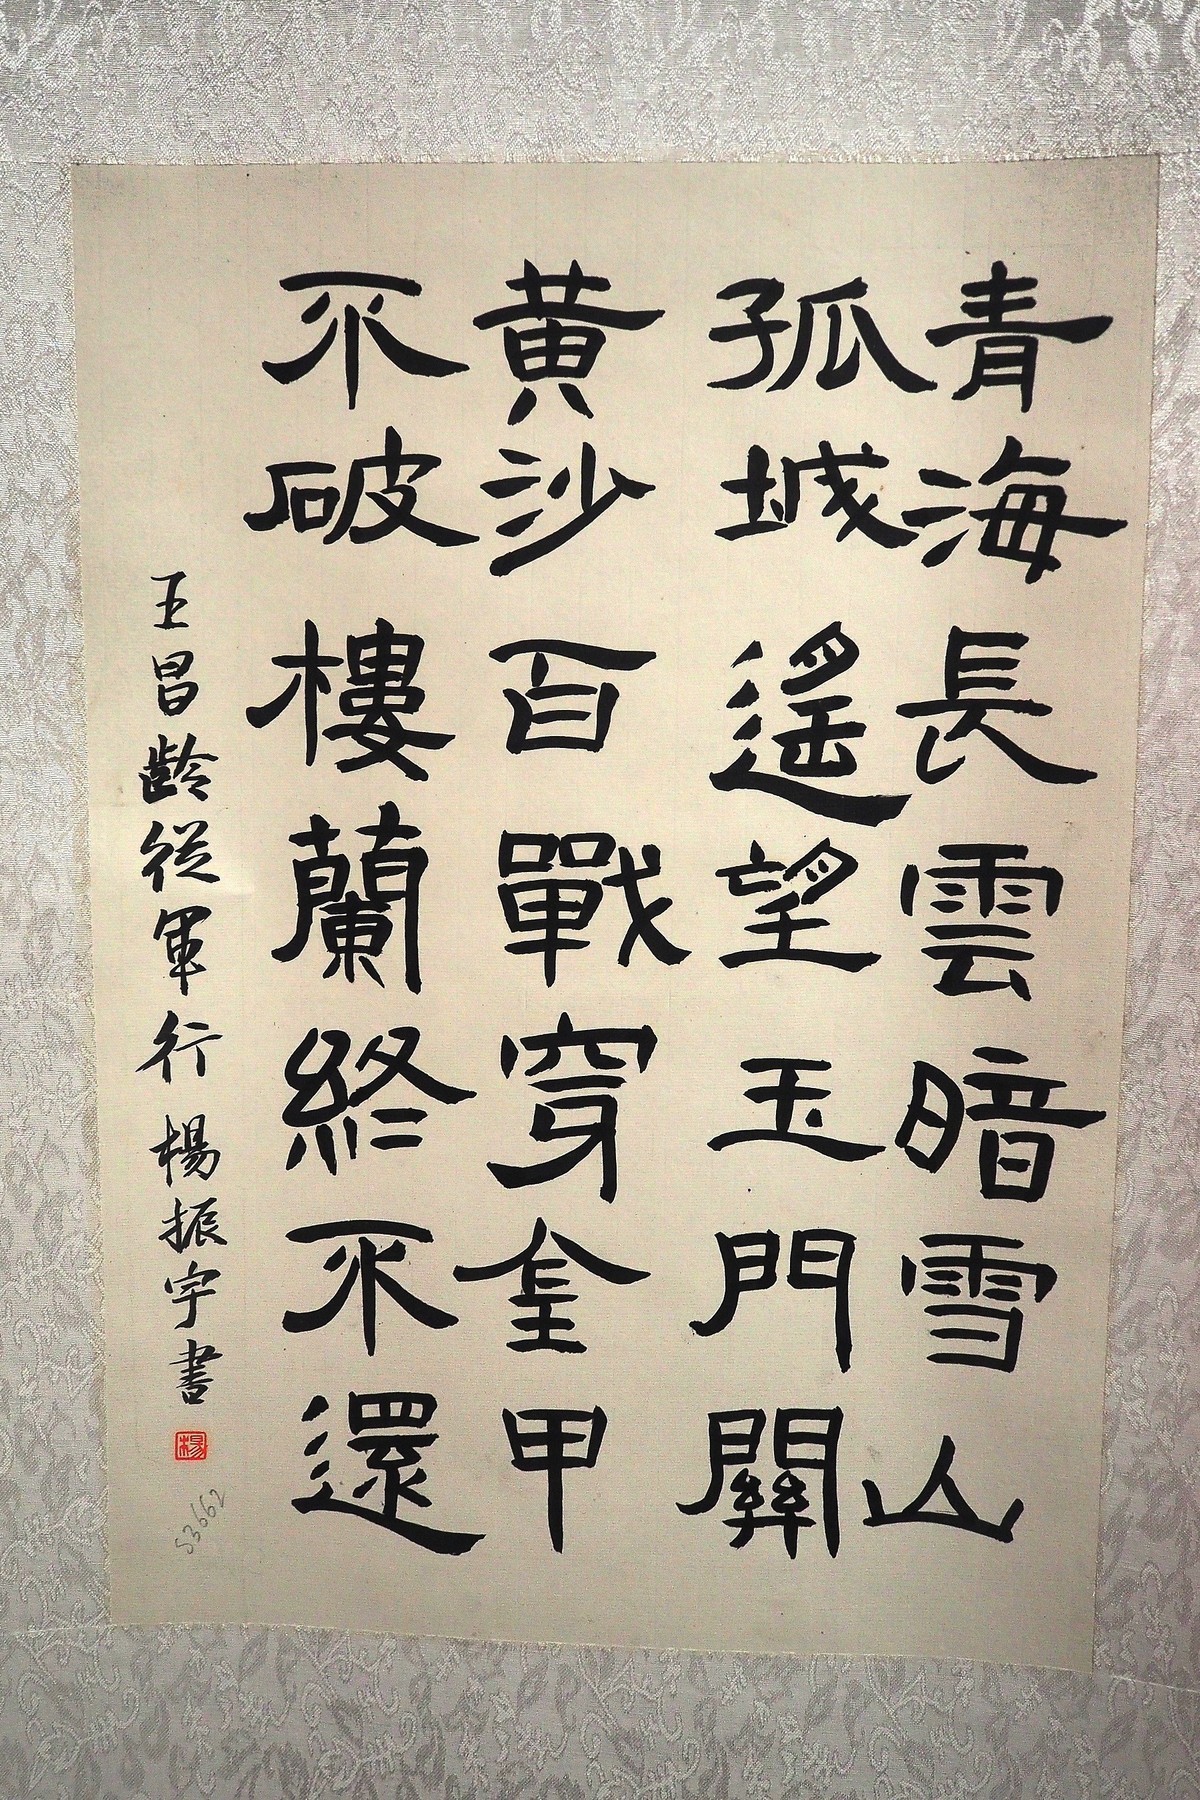 青海長雲暗雪山
孤城遙望玉門關
黃沙百戰穿金甲
不破樓蘭終不還
王昌齡從軍行 楊振宇書
楊
53662